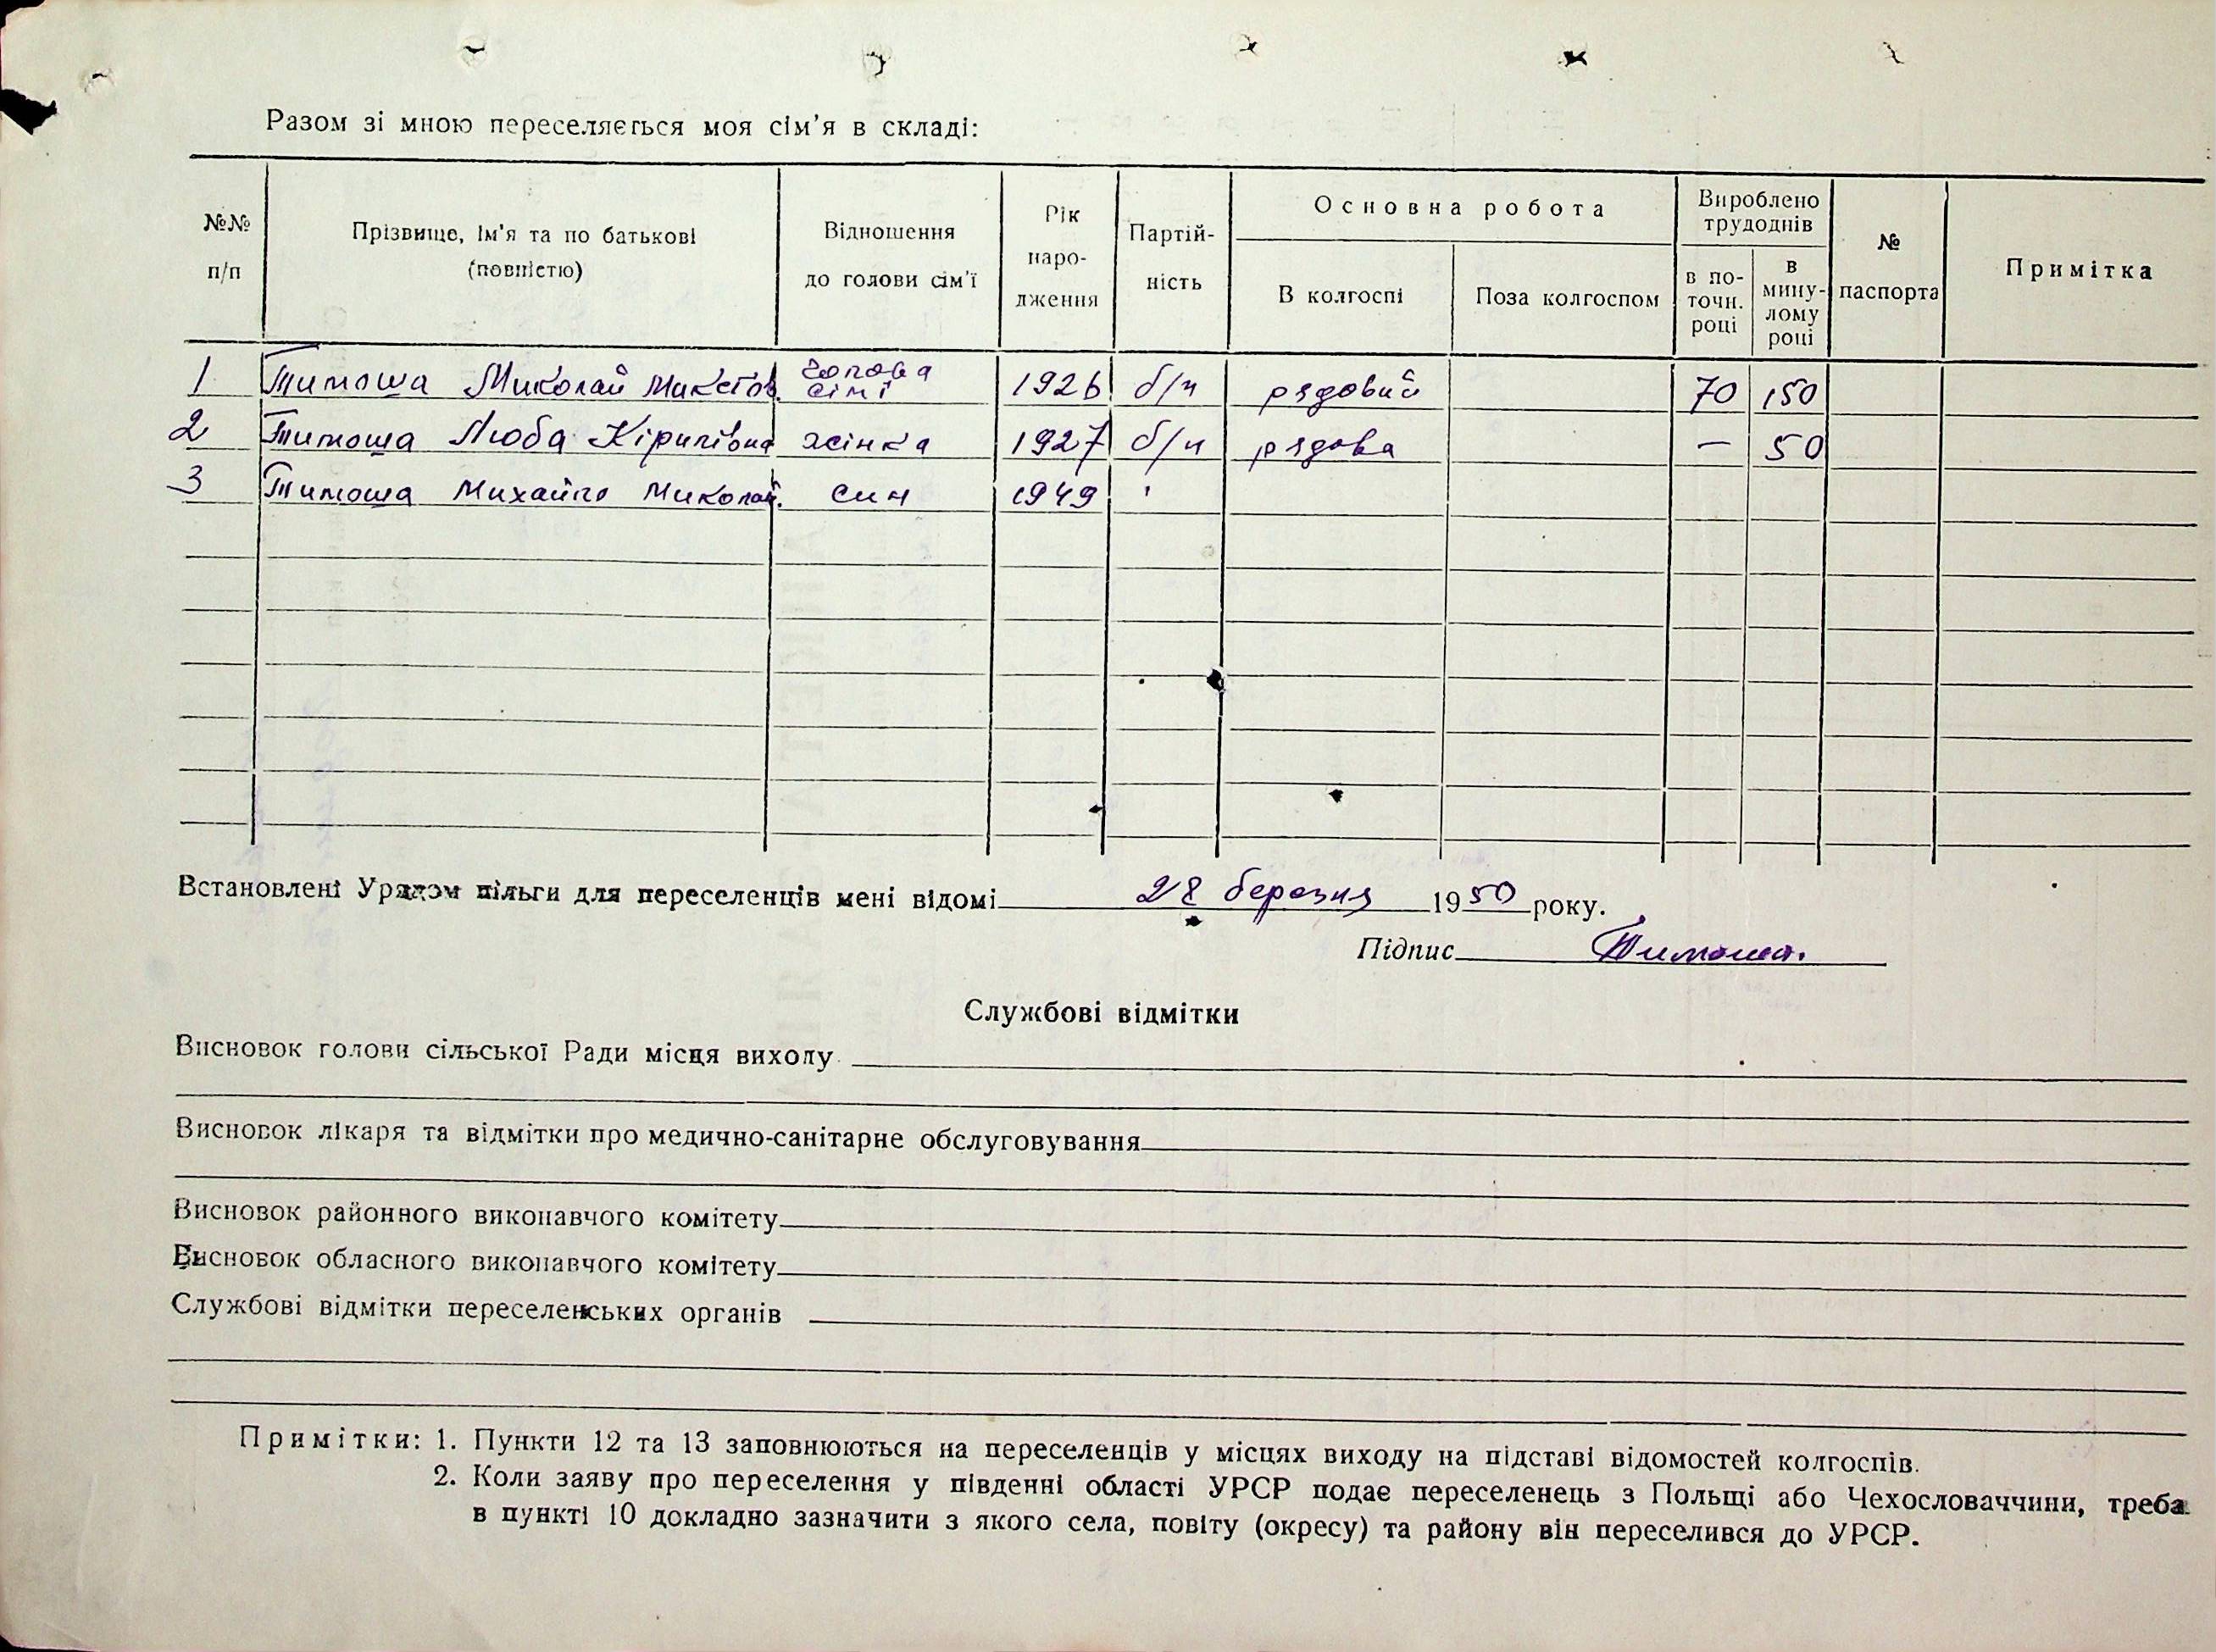 Разом зі мною переселяється моя сім'я в складі:
№№ п/п
Прізвище, ім'я та по батькові (повністю)
Відношення до голови сім'ї
Рік народження
Партійність
Основна робота
В колгоспі
Поза колгоспом
Вироблено трудоднів
в поточн. році
в минулому році
№ паспорта
Примітка
1 Тимоша Миколай Микитов. голова сімї 1926 б/п рядовий 70 150
2 Тимоша Люба Кірилівна жінка 1927 б/п рядова — 50
3 Тимоша Михайло Миколай. син 1949
Встановлені Урядом пільги для переселенців мені відомі 28 березня 1950 року.
Підпис Тимоша.
Службові відмітки
Висновок голови сільської Ради місця виходу
Висновок лікаря та відмітки про медично-санітарне обслуговування
Висновок районного виконавчого комітету
Висновок обласного виконавчого комітету
Службові відмітки переселенських органів
Примітки: 1. Пункти 12 та 13 заповнюються на переселенців у місцях виходу на підставі відомостей колгоспів.
2. Коли заяву про переселення у південні області УРСР подає переселенець з Польщі або Чехословаччини, треба
в пункті 10 докладно зазначити з якого села, повіту (окресу) та району він переселився до УРСР.